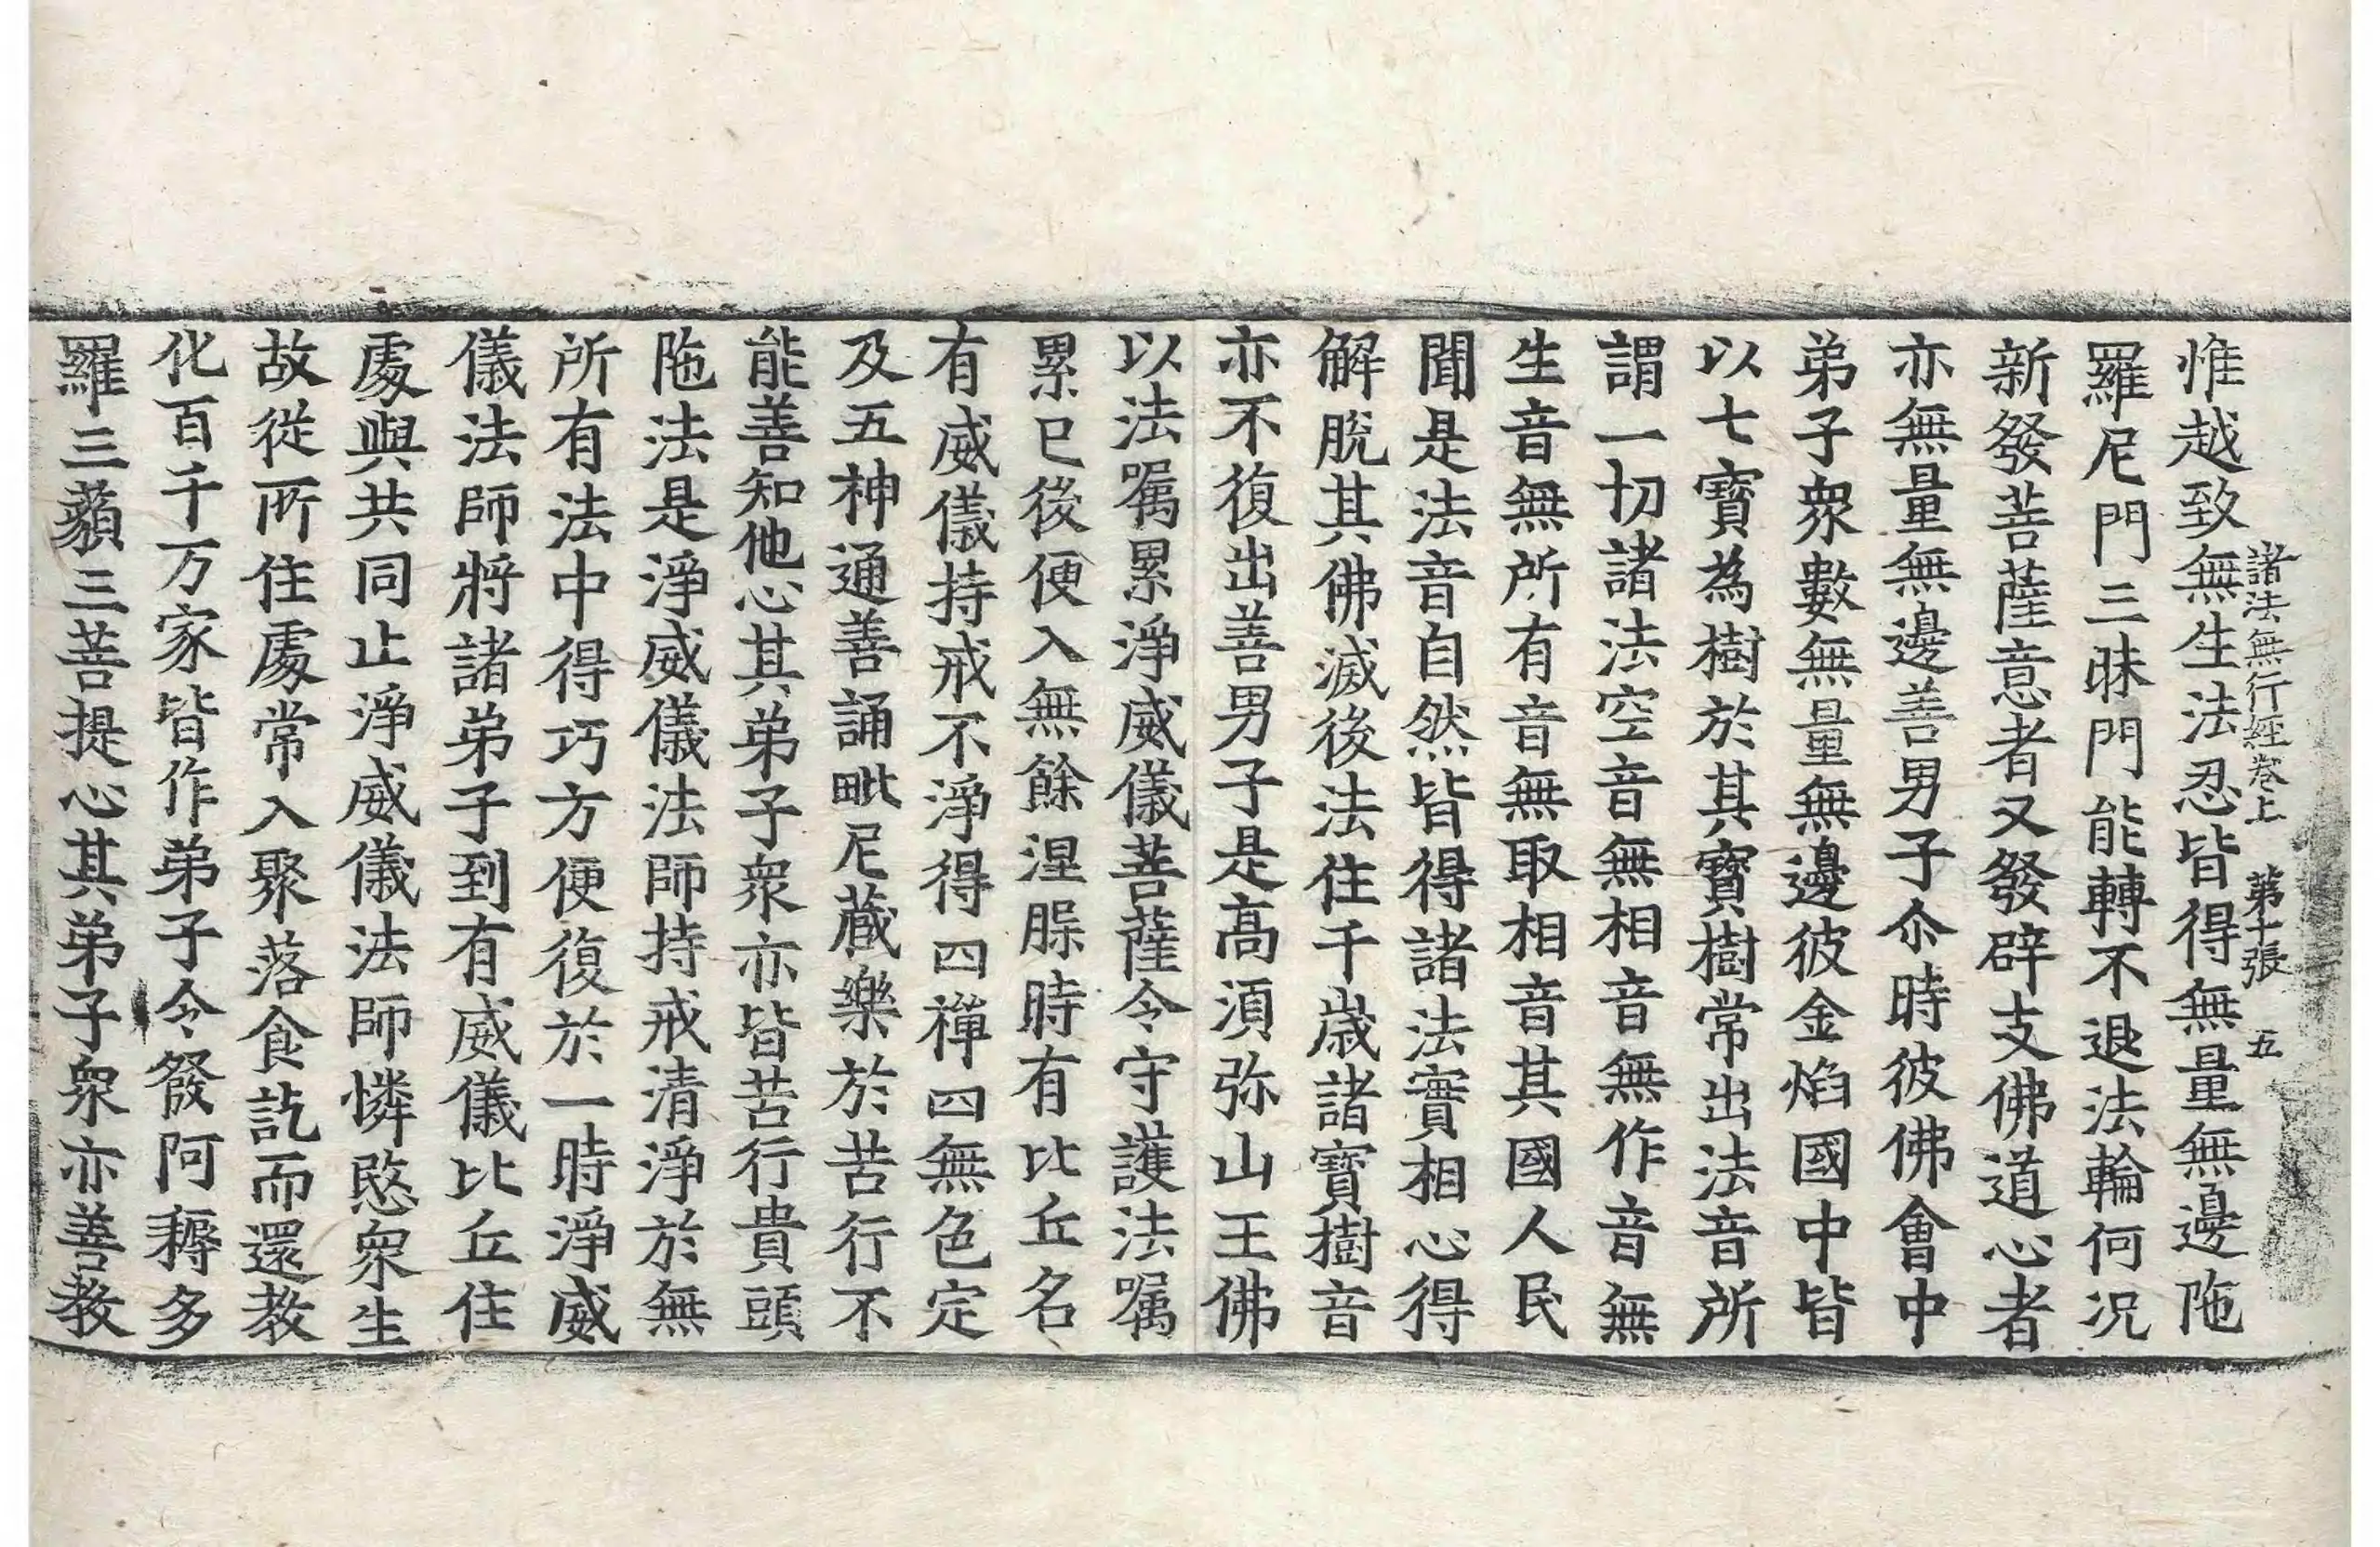 諸法無行經卷上　第十張　五
惟越致無生法忍皆得無量無邊陁
羅尼門三昧門能轉不退法輪何況
新發菩薩意者又發辟支佛道心者
亦無量無邊善男子尒時彼佛會中
弟子衆數無量無邊彼金焰國中皆
以七寶為樹於其寶樹常出法音所
謂一切諸法空音無相音無作音無
生音無所有音無取相音其國人民
聞是法音自然皆得諸法實相心得
解脫其佛滅後法住千歲諸寶樹音
亦不復出善男子是高湏弥山王佛
以法嘱累淨威儀菩薩令守護法嘱
累已後便入無餘涅脲時有比丘名
有威儀持戒不淨得四禪四無色定
及五神通善誦毗尼藏樂於苦行不
能善知他心其弟子衆亦皆苦行貴頭
陁法是淨威儀法師持戒清淨於無
所有法中得巧方便復於一時淨威
儀法師將諸弟子到有威儀比丘住
處與共同止淨威儀法師憐愍衆生
故從所住處常入聚落食訖而還教
化百千万家皆作弟子令發阿耨多
羅三藐三菩提心其弟子衆亦善教